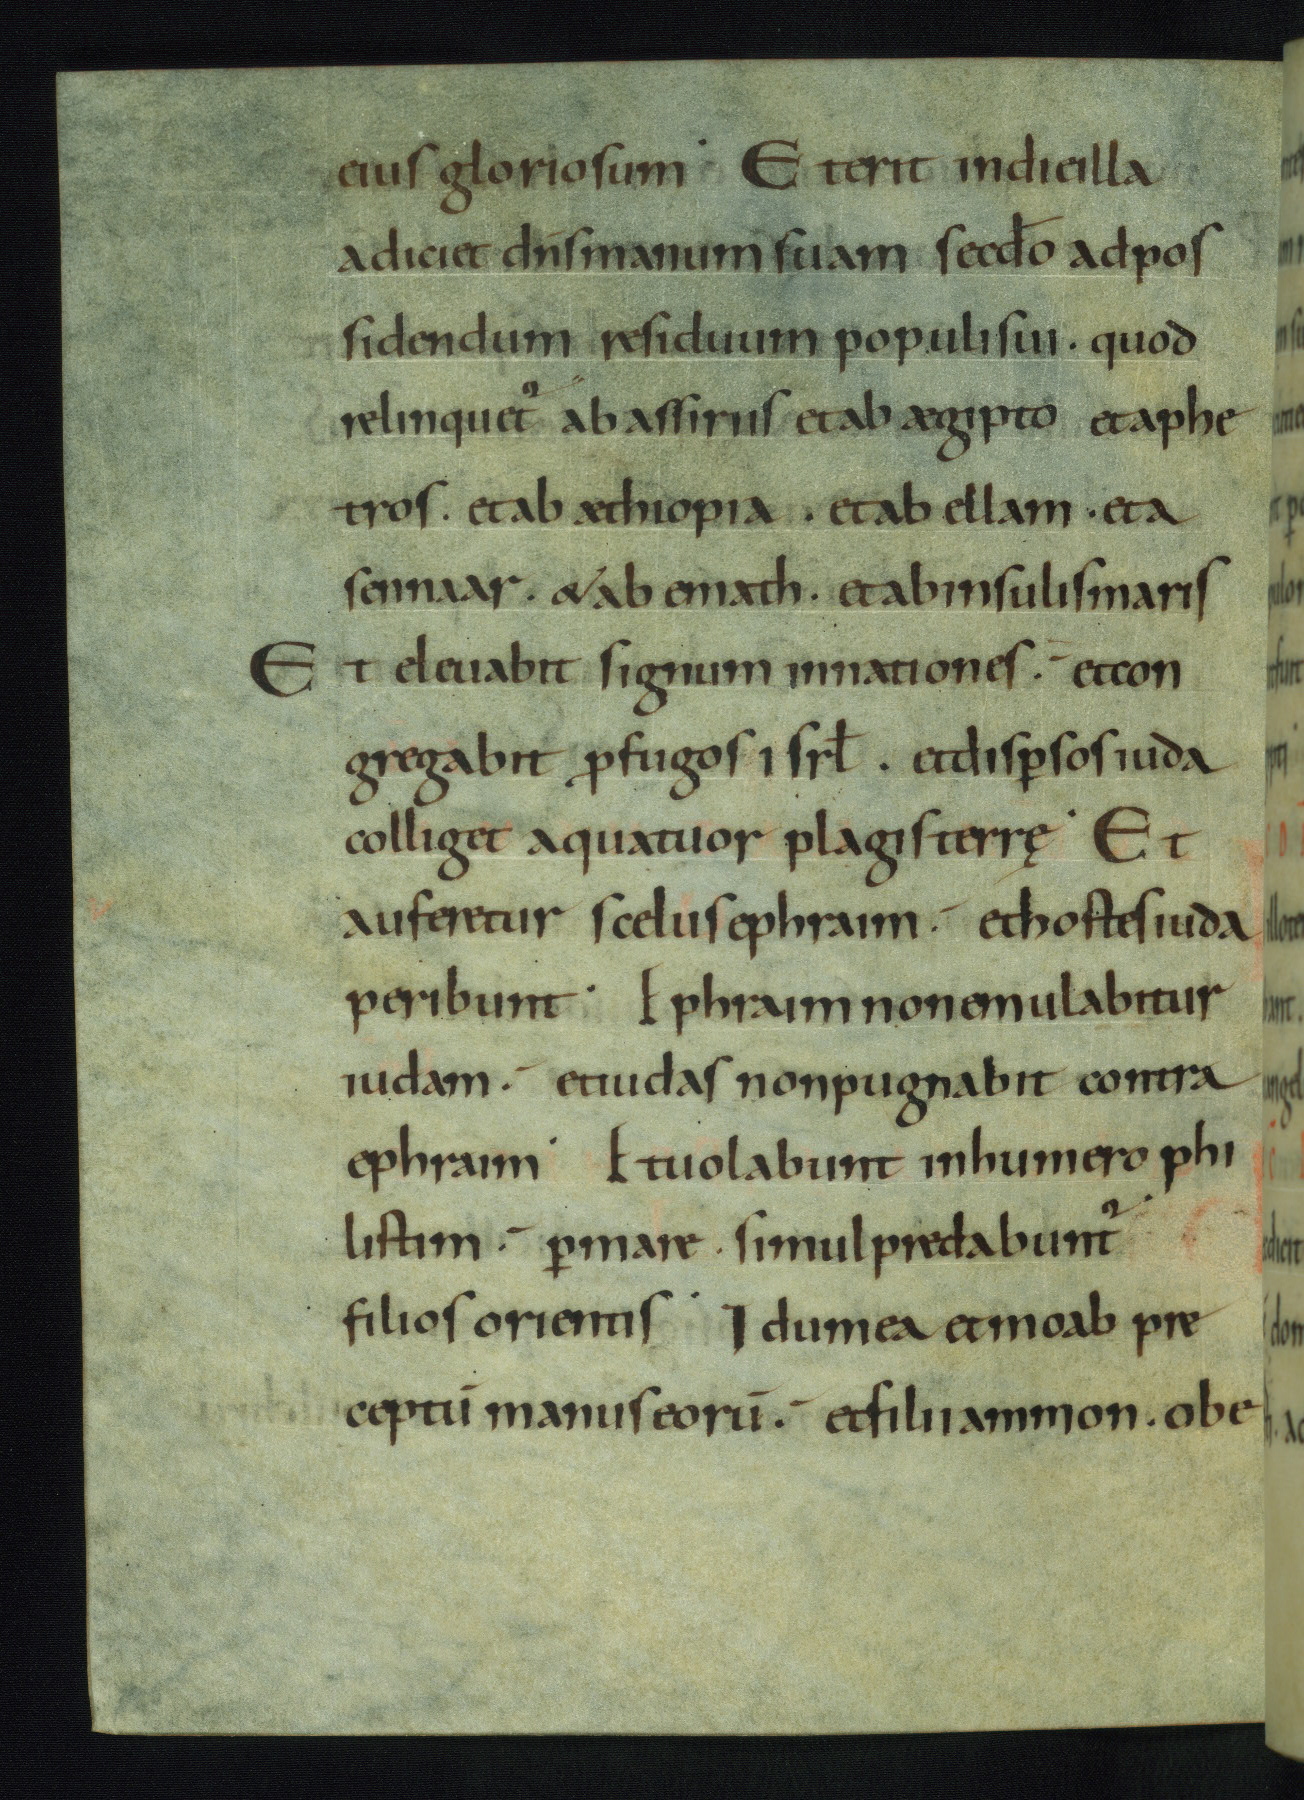 eius gloriosum· Et erit in die illa
adiciet dn̄s manum suam secdo̅ ad pos
sidendum residuum populi sui. quod
relinquet᾽ ab assiriis et ab ægipto et a phe
tros. et ab æthiopia. et ab ellam. et a
sennaar. & ab emath. et ab insulis maris
Et eleuabit signum in nationes. et con
gregabit ꝓfugos isrł. et disꝑsos iuda
colliget a quatuor plagis terrę· Et
auferetur scelus ephraim. et hostes iuda
peribunt· Ephraim non emulabitur
iudam. et iudas non pugnabit contra
ephraim· Et uolabunt in humero phi
listim. ꝑ mare. simul predabunt᾽
filios orientis· Idumea et moab pre
ceptū manus eorū. et filii ammon. obe